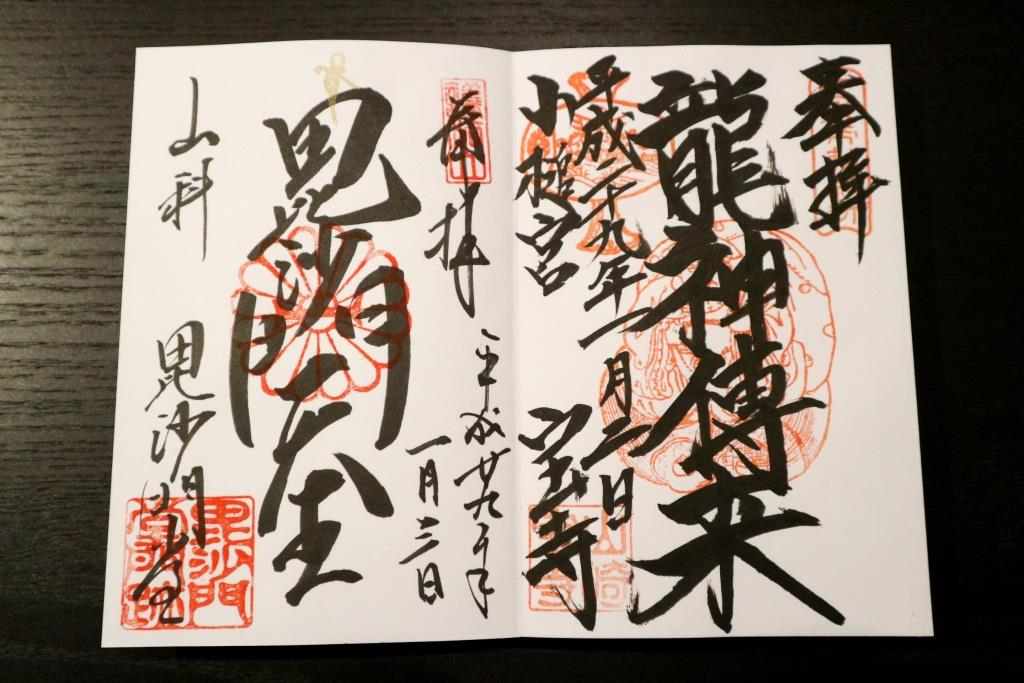 奉拝
龍神傳来
平成二十九年一月二日
小槌宮
宝寺
奉拝
平成廿九年
一月三日
毘沙門天王
山科
毘沙門堂
毘沙門